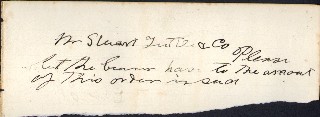 Mr Stuart Tuttle & Co Please
let the bearer have to the amount
of This order in said